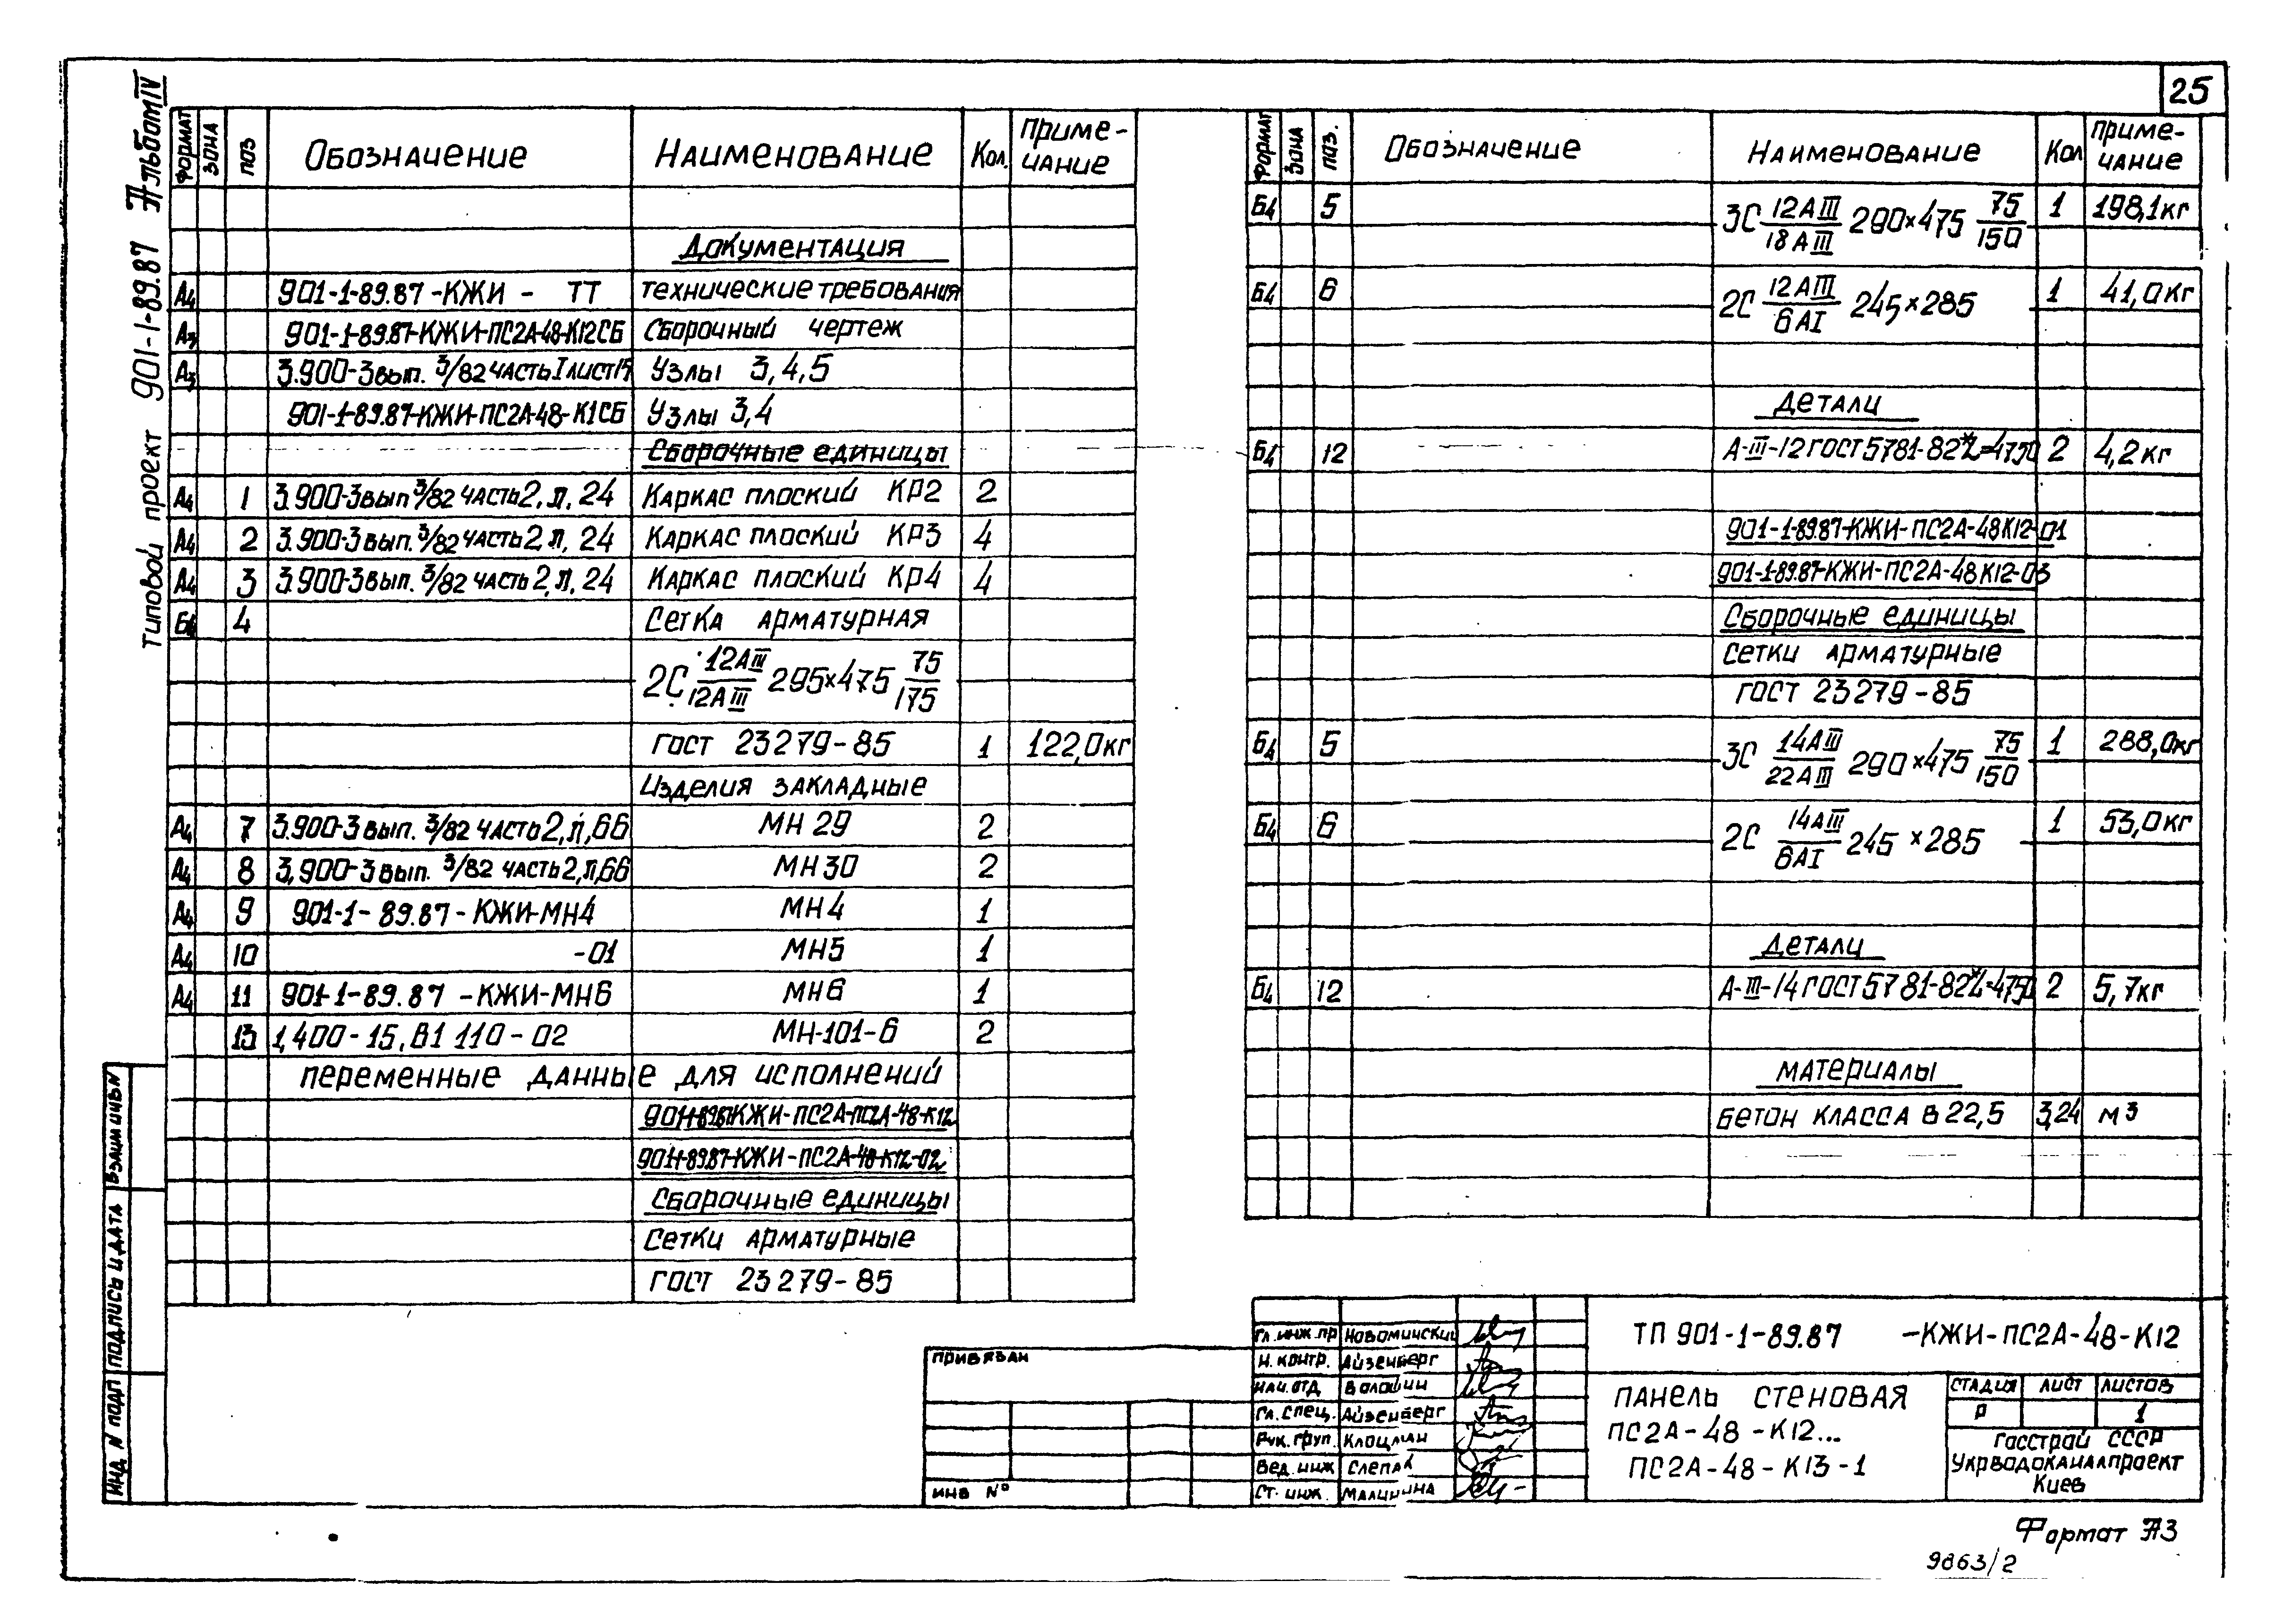 25
Типовой проект 901-1-89.87 Альбом IV
Формат Зона Поз Обозначение Наименование Кол. Примечание
Документация
А4 901-1-89.87-КЖИ- ТТ Технические требования
А3 901-1-89.87-КЖИ-ПС2А-48-К12СБ Сборочный чертеж
А3 3.900-3 вып. 3/82 часть I лист 15 Узлы 3,4,5
901-1-89.87-КЖИ-ПС2А-48-К1СБ Узлы 3,4
Сборочные единицы
А4 1 3.900-3 вып 3/82 часть 2, л, 24 Каркас плоский КР2 2
А4 2 3.900-3 вып. 3/82 часть 2, л, 24 Каркас плоский КР3 4
А4 3 3.900-3 вып. 3/82 часть 2, л, 24 Каркас плоский КР4 4
Б4 4 Сетка арматурная
2С 12АIII/12АIII 295×475 75/175
ГОСТ 23279-85 1 122,0кг
Изделия закладные
А4 7 3.900-3 вып. 3/82 часть 2, л, 66 МН 29 2
А4 8 3,900-3 вып. 3/82 часть 2, л, 66 МН30 2
А4 9 901-1-89.87-КЖИ-МН4 МН4 1
А4 10 -01 МН5 1
А4 11 901-1-89.87-КЖИ-МН6 МН6 1
13 1,400-15, В1 110-02 МН-101-6 2
Переменные данные для исполнений
901-1-89.87-КЖИ-ПС2А-ПС2А-48-К12
901-1-89.87-КЖИ-ПС2А-48-К12-02
Сборочные единицы
Сетки арматурные
ГОСТ 23279-85
Формат Зона Поз. Обозначение Наименование Кол Примечание
Б4 5 3С 12АIII/18АIII 290×475 75/150 1 198,1кг
Б4 6 2С 12АIII/6АI 245×285 1 41,0кг
Детали
Б4 12 А-III-12 ГОСТ 5781-82* L=4750 2 4,2кг
901-1-89.87-КЖИ-ПС2А-48К12-01
901-1-89.87-КЖИ-ПС2А-48К12-03
Сборочные единицы
Сетки арматурные
ГОСТ 23279-85
Б4 5 3С 14АIII/22АIII 290×475 75/150 1 288,0кг
Б4 6 2С 14АIII/6АI 245×285 1 53,0кг
Детали
Б4 12 А-III-14 ГОСТ 5781-82* L=4750 2 5,7кг
Материалы
Бетон класса В 22,5 3,24 м3
Взам инв N
Подпись и дата
Инд N подл
Привязан
Инв №
Гл. инж. пр Новоминский
Н. контр. Айзенберг
Нач. отд Волошин
Гл. спец. Айзенберг
Рук. груп. Клоцман
Вед. инж Слепак
Ст. инж. Малинина
ТП 901-1-89.87 -КЖИ-ПС2А-48-К12
Панель стеновая
ПС2А-48-К12...
ПС2А-48-К13-1
Стадия Лист Листов
Р 1
Госстрой СССР
Укрводоканалпроект
Киев
Формат А3
9863/2